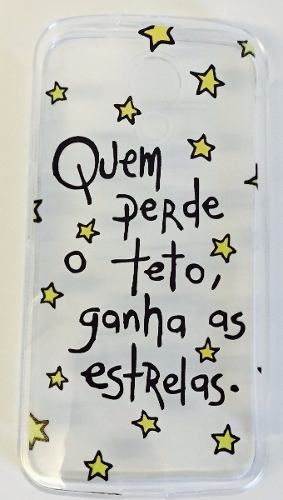 Quem
perde
o teto,
ganha as
estrelas.